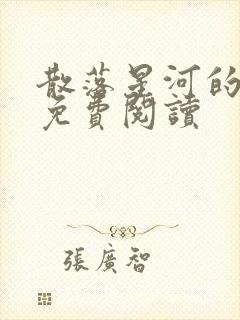 散落星河的
免費閱讀
張廣智